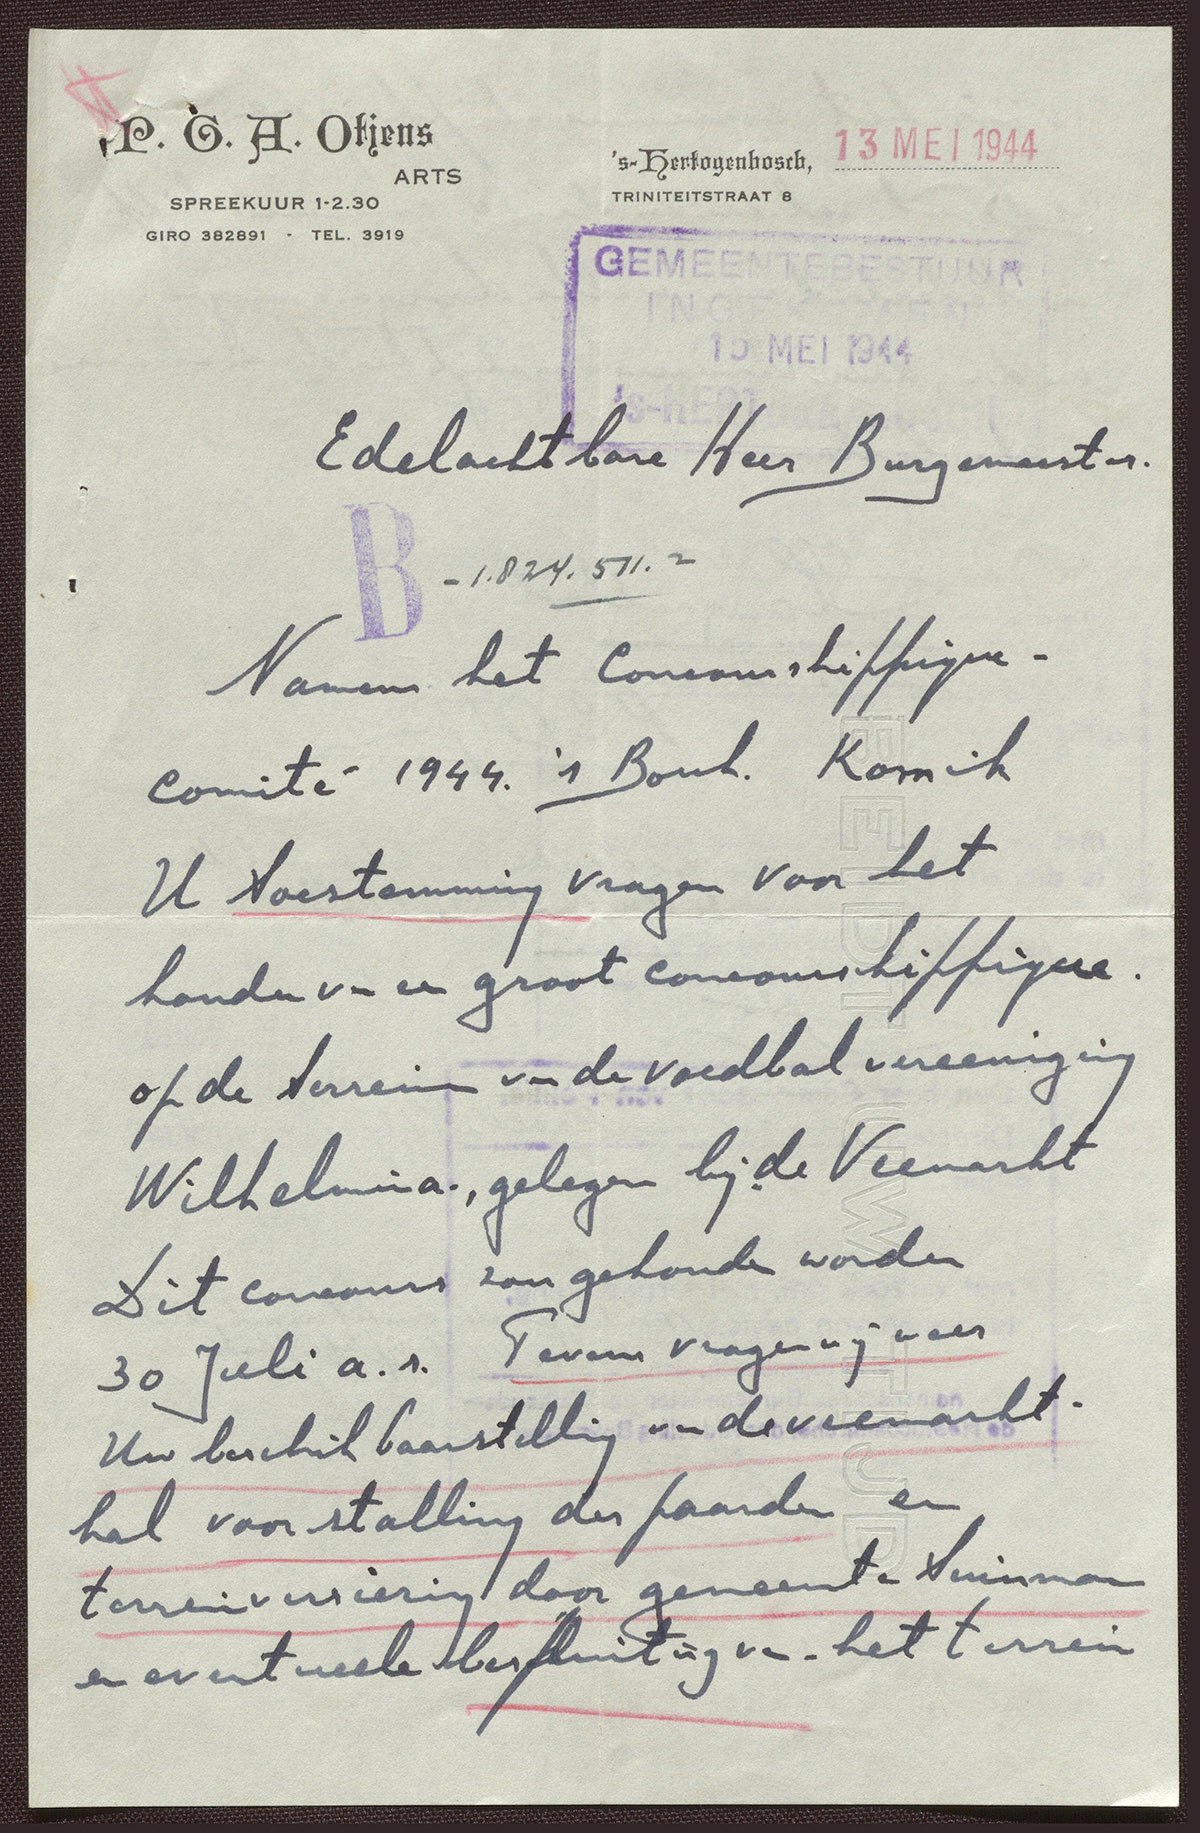 P. G. A. Otjens
ARTS
SPREEKUUR 1-2.30
GIRO 382891 - TEL. 3919
's-Hertogenbosch, 13 MEI 1944
TRINITEITSTRAAT 8
GEMEENTEBESTUUR
INGEKOMEN
15 MEI 1944
's-HERT
Edelachtbare Heer Burgemeester.
B -1.824.511.2
Namens het Concourshippique-
comité 1944. 's Bosch. Kom ik
U toestemming vragen voor het
houden van een groot concourshippique.
op de terrein van de voedbalvereeniging
Wilhelmina., gelegen bij de Veemarkt
Dit concours zou gehouden worden
30 Juli a.s. Tevens vragen wij weer
Uw beschikbaarstelling van de veemarkt-
hal voor stalling der paarden en
terreinversiering door gemeente tuinman
en eventueele besproeiing van het terrein